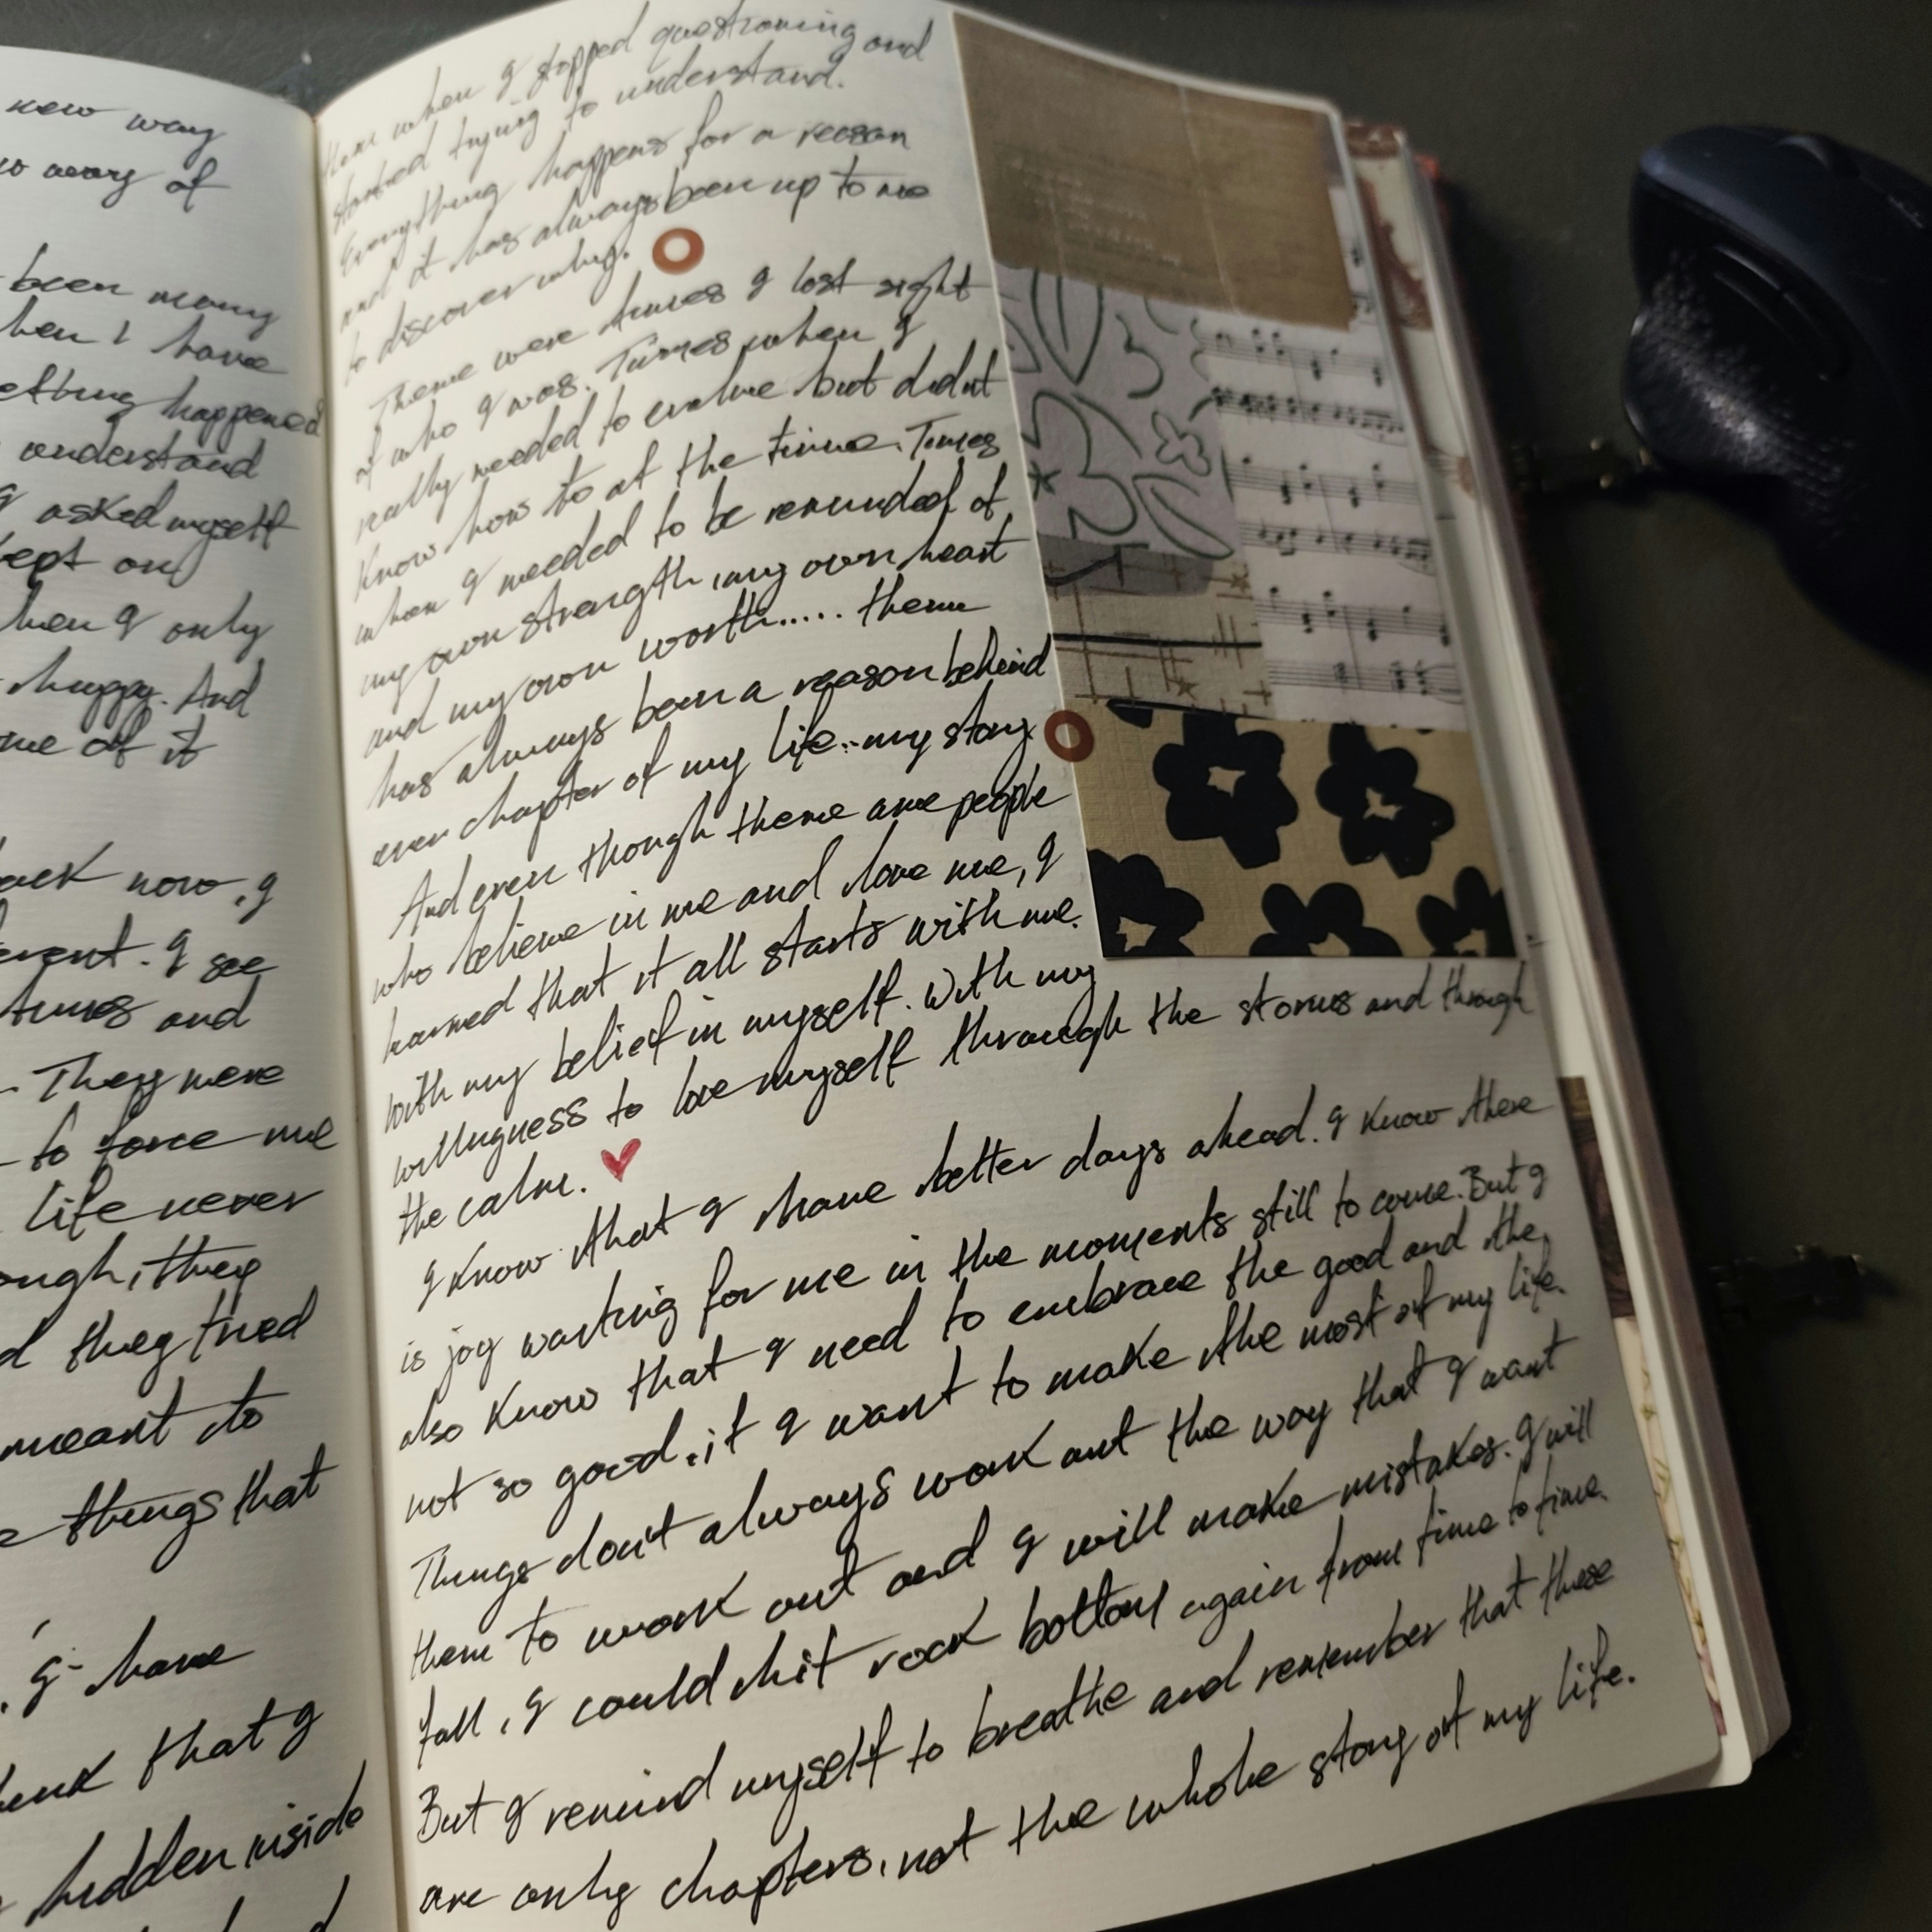 new way
way of
been many
hen I have
ething happened
understand
I asked myself
kept on
hen I only
happy. And
me of it
back now, I
erent. I see
times and
They were
to force me
life never
ough, they
d they tried
meant to
things that
, I have
that I
hidden inside
when I stopped questioning and
started trying to understand.
Everything happens for a reason
and it has always been up to me
to discover why.
There were times I lost sight
of who I was. Times when I
really needed to evolve but didnt
know how to at the time. Times
when I needed to be reminded of
my own strength, my own heart
and my own worth..... there
has always been a reason behind
ever chapter of my life.. my story
And even though there are people
who believe in me and love me, I
learned that it all starts with me.
with my belief in myself. With my
willingness to love myself through the storms and through
the calm.
I know that I have better days ahead. I know there
is joy waiting for me in the moments still to come. But I
also know that I need to embrace the good and the
not so good, if I want to make the most of my life.
Things don't always work out the way that I want
them to work out and I will make mistakes. I will
fall, I could hit rock bottom again from time to time.
But I remind myself to breathe and remember that these
are only chapters, not the whole story of my life.